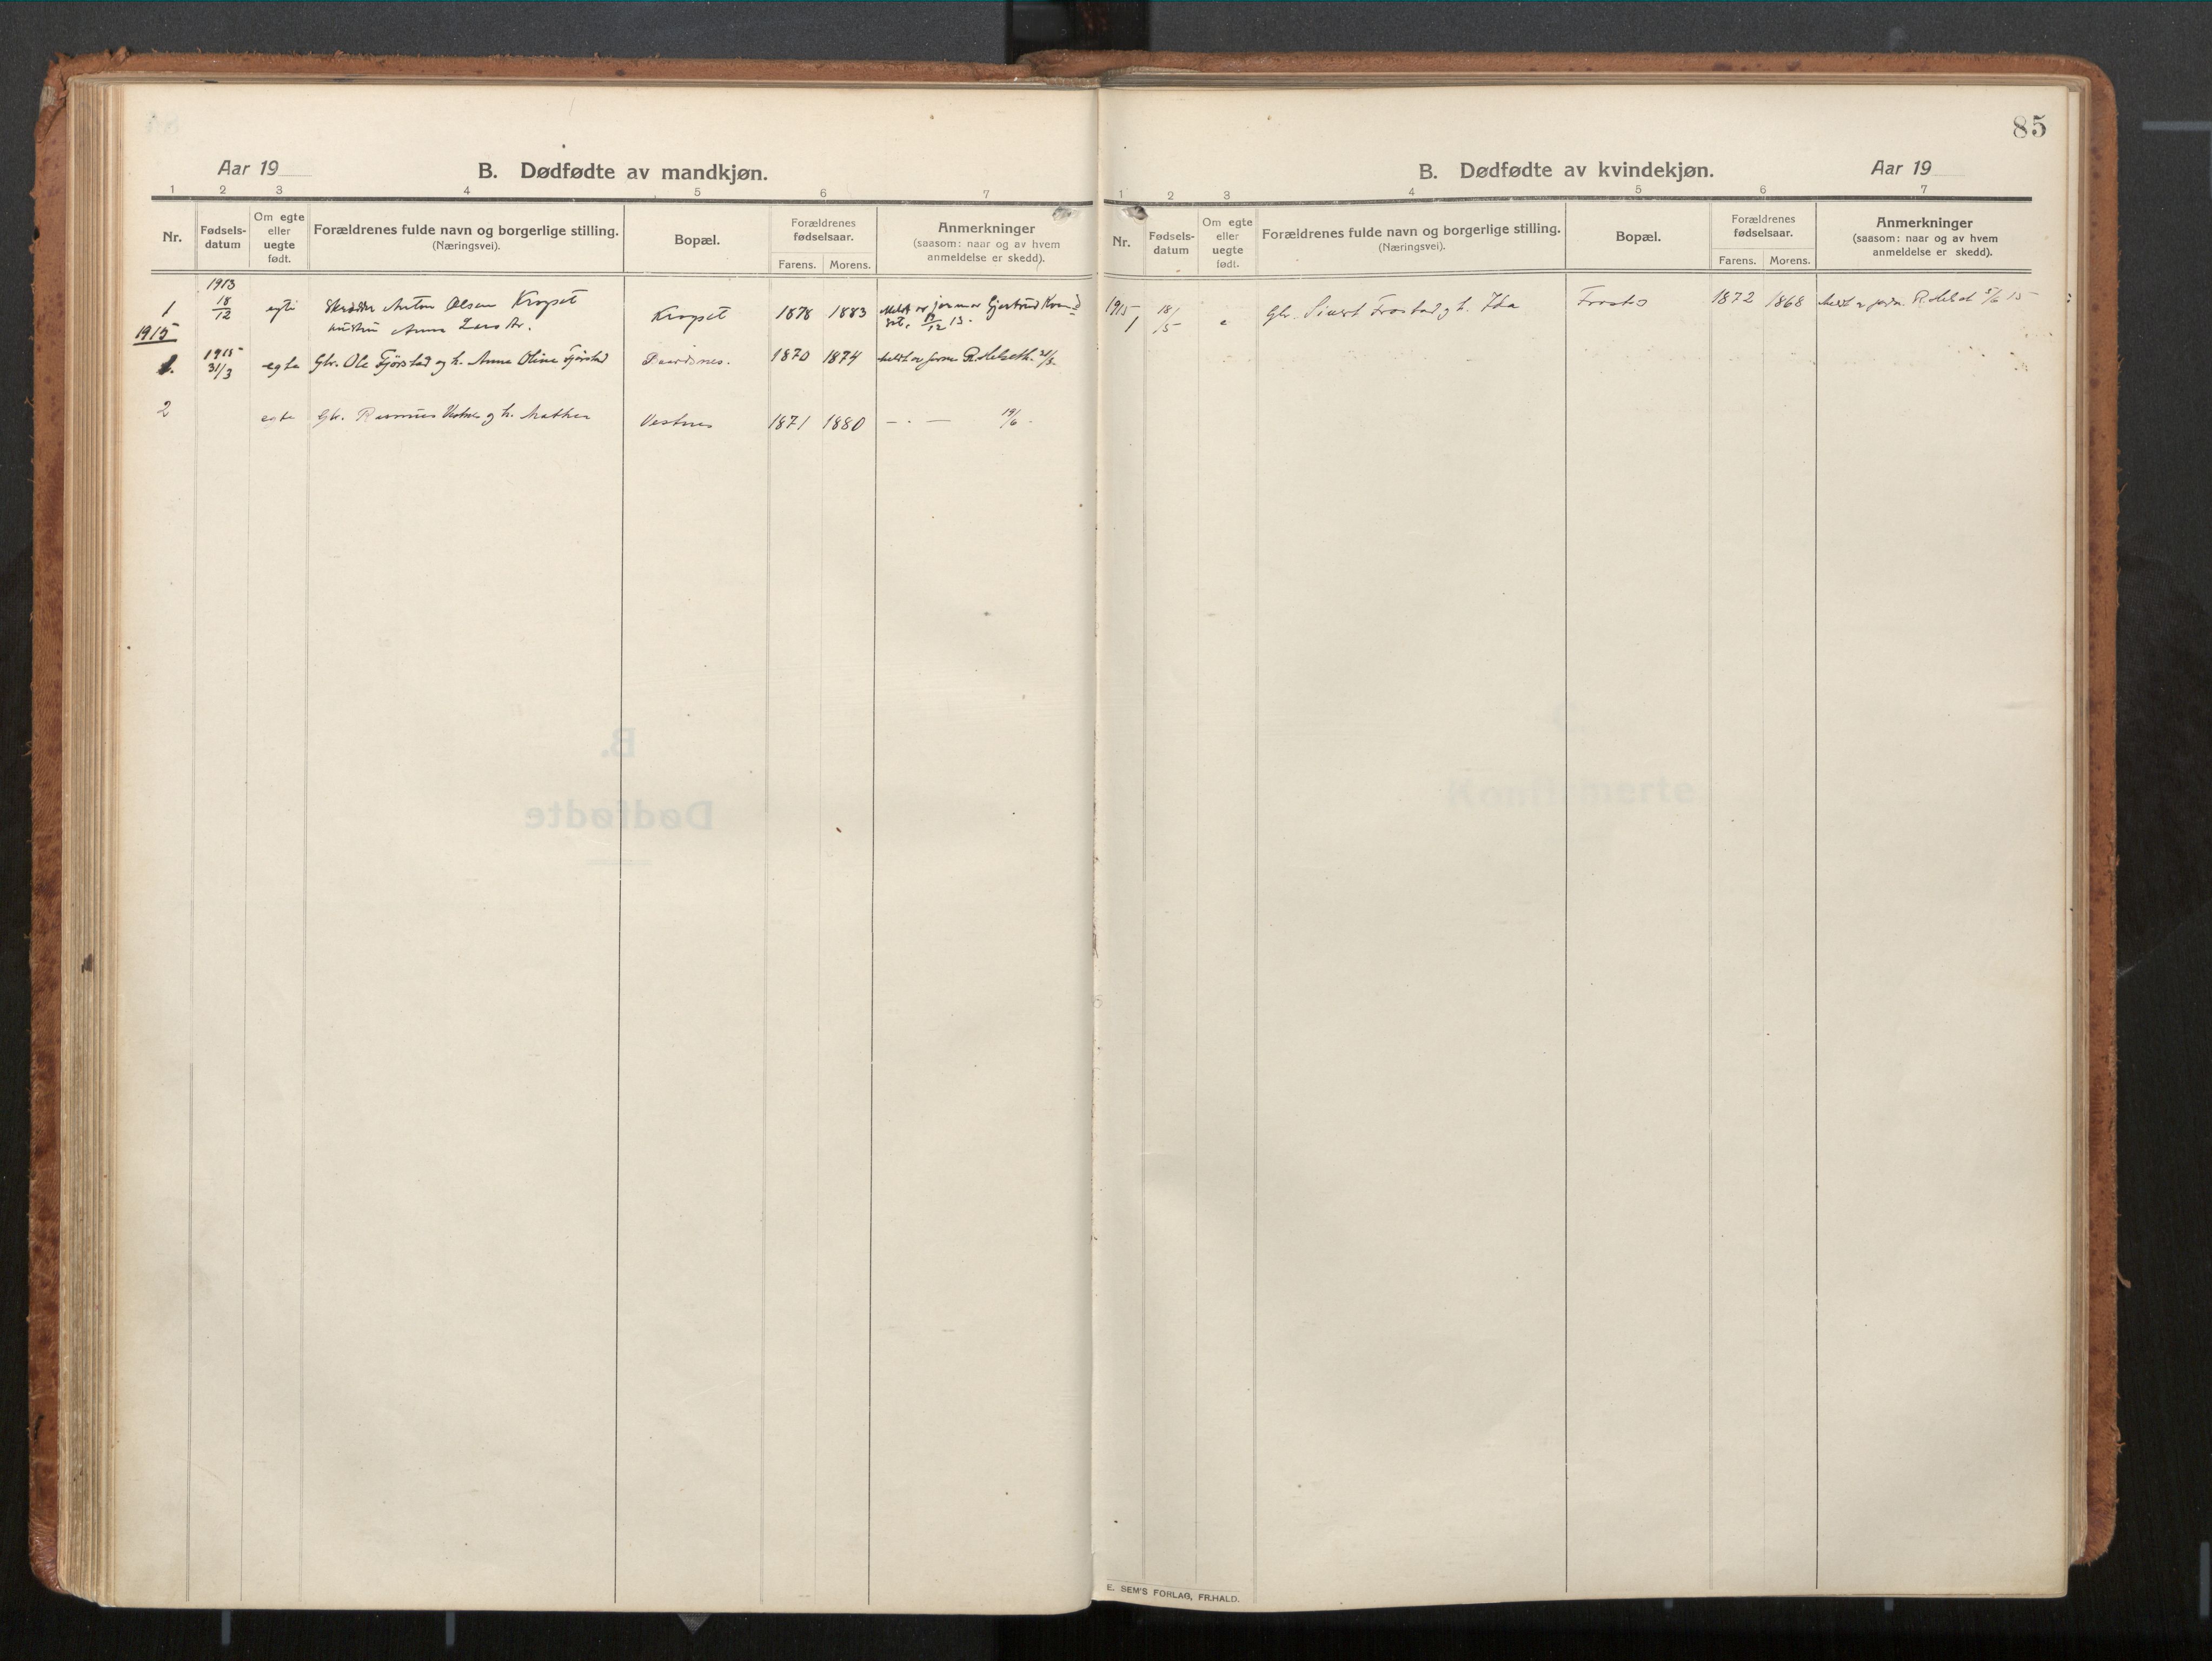 85
Aar 19
B. Dødfødte av mandkjøn.
1 2 3 4 5 6 7
Nr.
Fødsels-
datum
Om egte
eller
uegte
født.
Forældrenes fulde navn og borgerlige stilling.
(Næringsvei).
Bopæl.
Forældrenes
fødselsaar.
Farens. Morens.
Anmerkninger
(saasom: naar og av hvem
anmeldelse er skedd).
1913
1 18/12 egte Anton Olsen Kropset Kropset 1878 1883 Meldt av jormor Gjertrud
hustru Anna 12 13.
1915
1. 1915 31/3 egte Gbr. Ole Fjørstad og h. Anna Oline Fjørstad 1870 1874 meldt av 31/3.
2 egte Gbr. Rasmus Vestnes og h. Mathea Vestnes 1871 1880 — . — 19/6.
B.
Dødfødte
B. Dødfødte av kvindekjøn.
Aar 19
1 2 3 4 5 6 7
Nr.
Fødsels-
datum
Om egte
eller
uegte
født.
Forældrenes fulde navn og borgerlige stilling.
(Næringsvei).
Bopæl.
Forældrenes
fødselsaar.
Farens. Morens.
Anmerkninger
(saasom: naar og av hvem
anmeldelse er skedd).
1915 18/5 e Gbr. Sivert Frostad og h. Ida 1872 1868 meldt av 15
1
Konfirmerte
E. SEM'S FORLAG, FR.HALD.